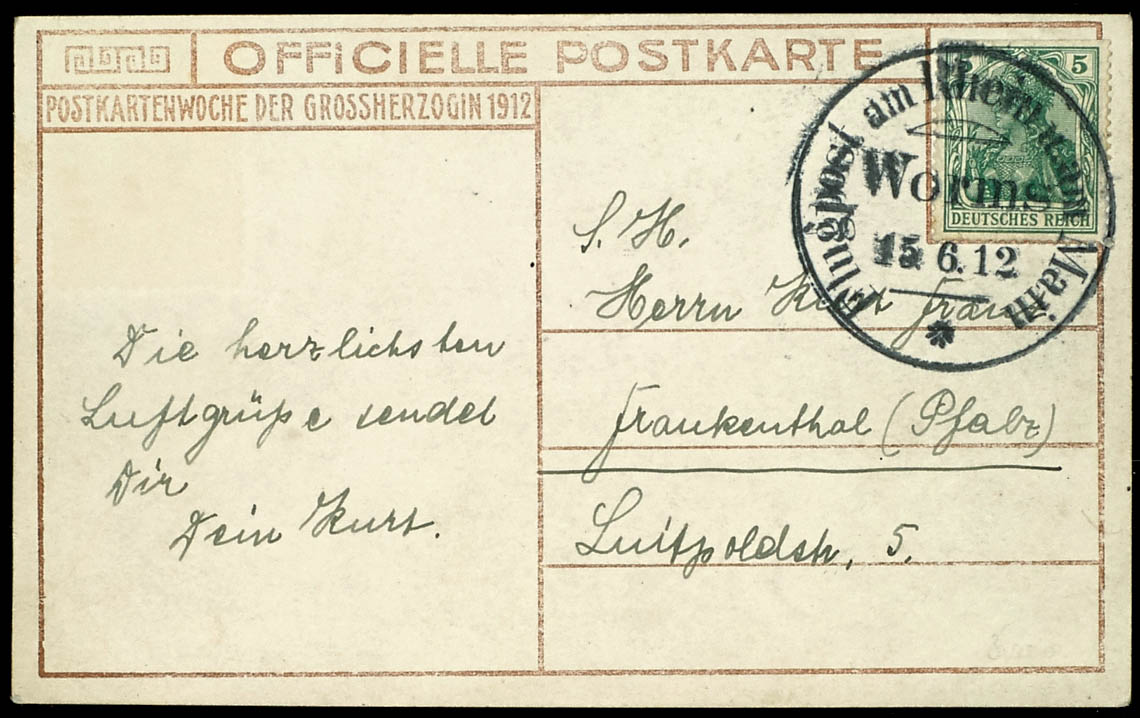 OFFICIELLE POSTKARTE
POSTKARTENWOCHE DER GROSSHERZOGIN 1912
5
DEUTSCHES REICH
Flugpost am Rhein u. am Main
Worms
15. 6. 12
Die herzlichsten
Luftgrüße sendet
Dir
Dein Kurt.
S. H.
Herrn Kurt
Frankenthal (Pfalz)
Luitpoldstr. 5.